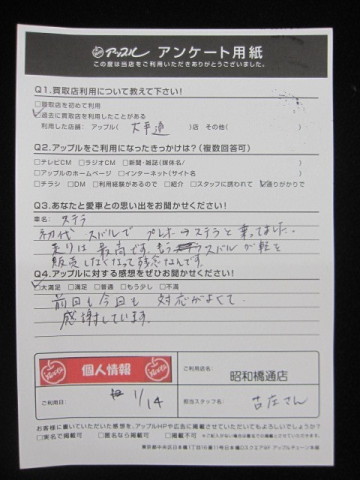 アップル アンケート用紙
この度は当店をご利用いただきありがとうございました。
Q1.買取店利用について教えて下さい!
□買取店を初めて利用
□過去に買取店を利用したことがある
利用した店舗: アップル( 大平通 )店 その他( )
Q2.アップルをご利用になったきっかけは?(複数回答可)
□テレビCM □ラジオCM □新聞・雑誌(媒体名/ )
□アップルのホームページ □インターネット(サイト名 )
□チラシ □DM □利用経験があるので □紹介 □スタッフに誘われて □通りがかりで
Q3.あなたと愛車との思い出をお聞かせください!
車名: ステラ
初代 スバルで プレオ→ステラと乗ってました。
走りは 最高です。もう スバルが軽を
販売しなくなって残念なんです。
Q4.アップルに対する感想をぜひお聞かせください!
□大満足 □満足 □普通 □もう少し □不満
前回も今回も 対応がよくて
感謝しています。
個人情報
ご利用店名: 昭和橋通店
ご利用日 1/14
担当スタッフ名: 古庄さん
お客様に書いていただいた感想を、アップルHPや広告に掲載させていただいてもよろしいでしょうか?
□実名で掲載可 □匿名なら掲載可 □掲載不可